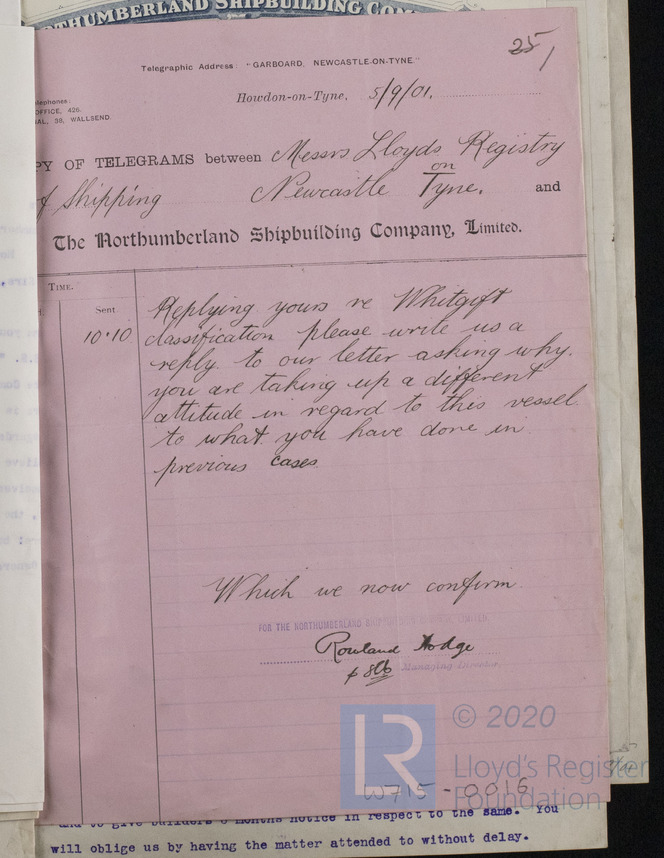 NORTHUMBERLAND SHIPBUILDING COM
25/
Telegraphic Address: "GARBOARD, NEWCASTLE-ON-TYNE."
elephones:
OFFICE, 426.
AL, 38, WALLSEND.
Howdon-on-Tyne, 5/9/01.
PY OF TELEGRAMS between Messrs Lloyds Registry
of Shipping Newcastle on Tyne. and
The Northumberland Shipbuilding Company, Limited.
TIME.
Sent
10.10
Replying yours re Whitgift
classification please write us a
reply to our letter asking why.
you are taking up a different
attitude in regard to this vessel
to what you have done in
previous cases
Which we now confirm.
FOR THE NORTHUMBERLAND SHIPBUILDING COMPANY, LIMITED.
Rowland Hodge
Managing Director.
© 2020
LR
Lloyd's Register
Foundation
W715 - 0016
and to give builders 6 months notice in respect to the same. You
will oblige us by having the matter attended to without delay.